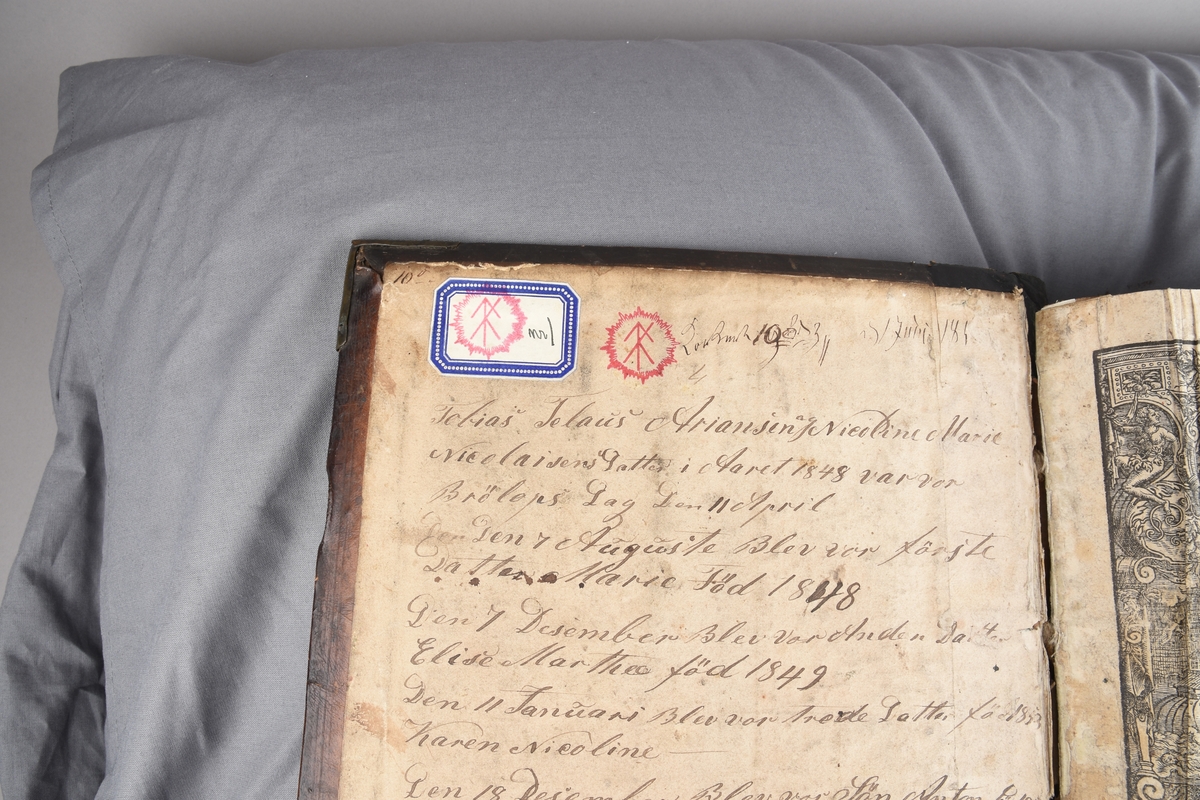 10
No 1
Tobias Tobaus Ariansen og Nicoline Marie
Nicolaisens Datter i Aaret 1848 var vor
Brölops Dag Den 11 April
Den 7 Auguste Blev vor förste
Datter Marie Föd 1848
Den 7 Desember Blev vor Anden Datter
Elise Marthee föd 1849
Den 11 Januari Blev vor trede Datter föd
Karen Nicoline
Den 18 Desember Blev vor Sön Anton